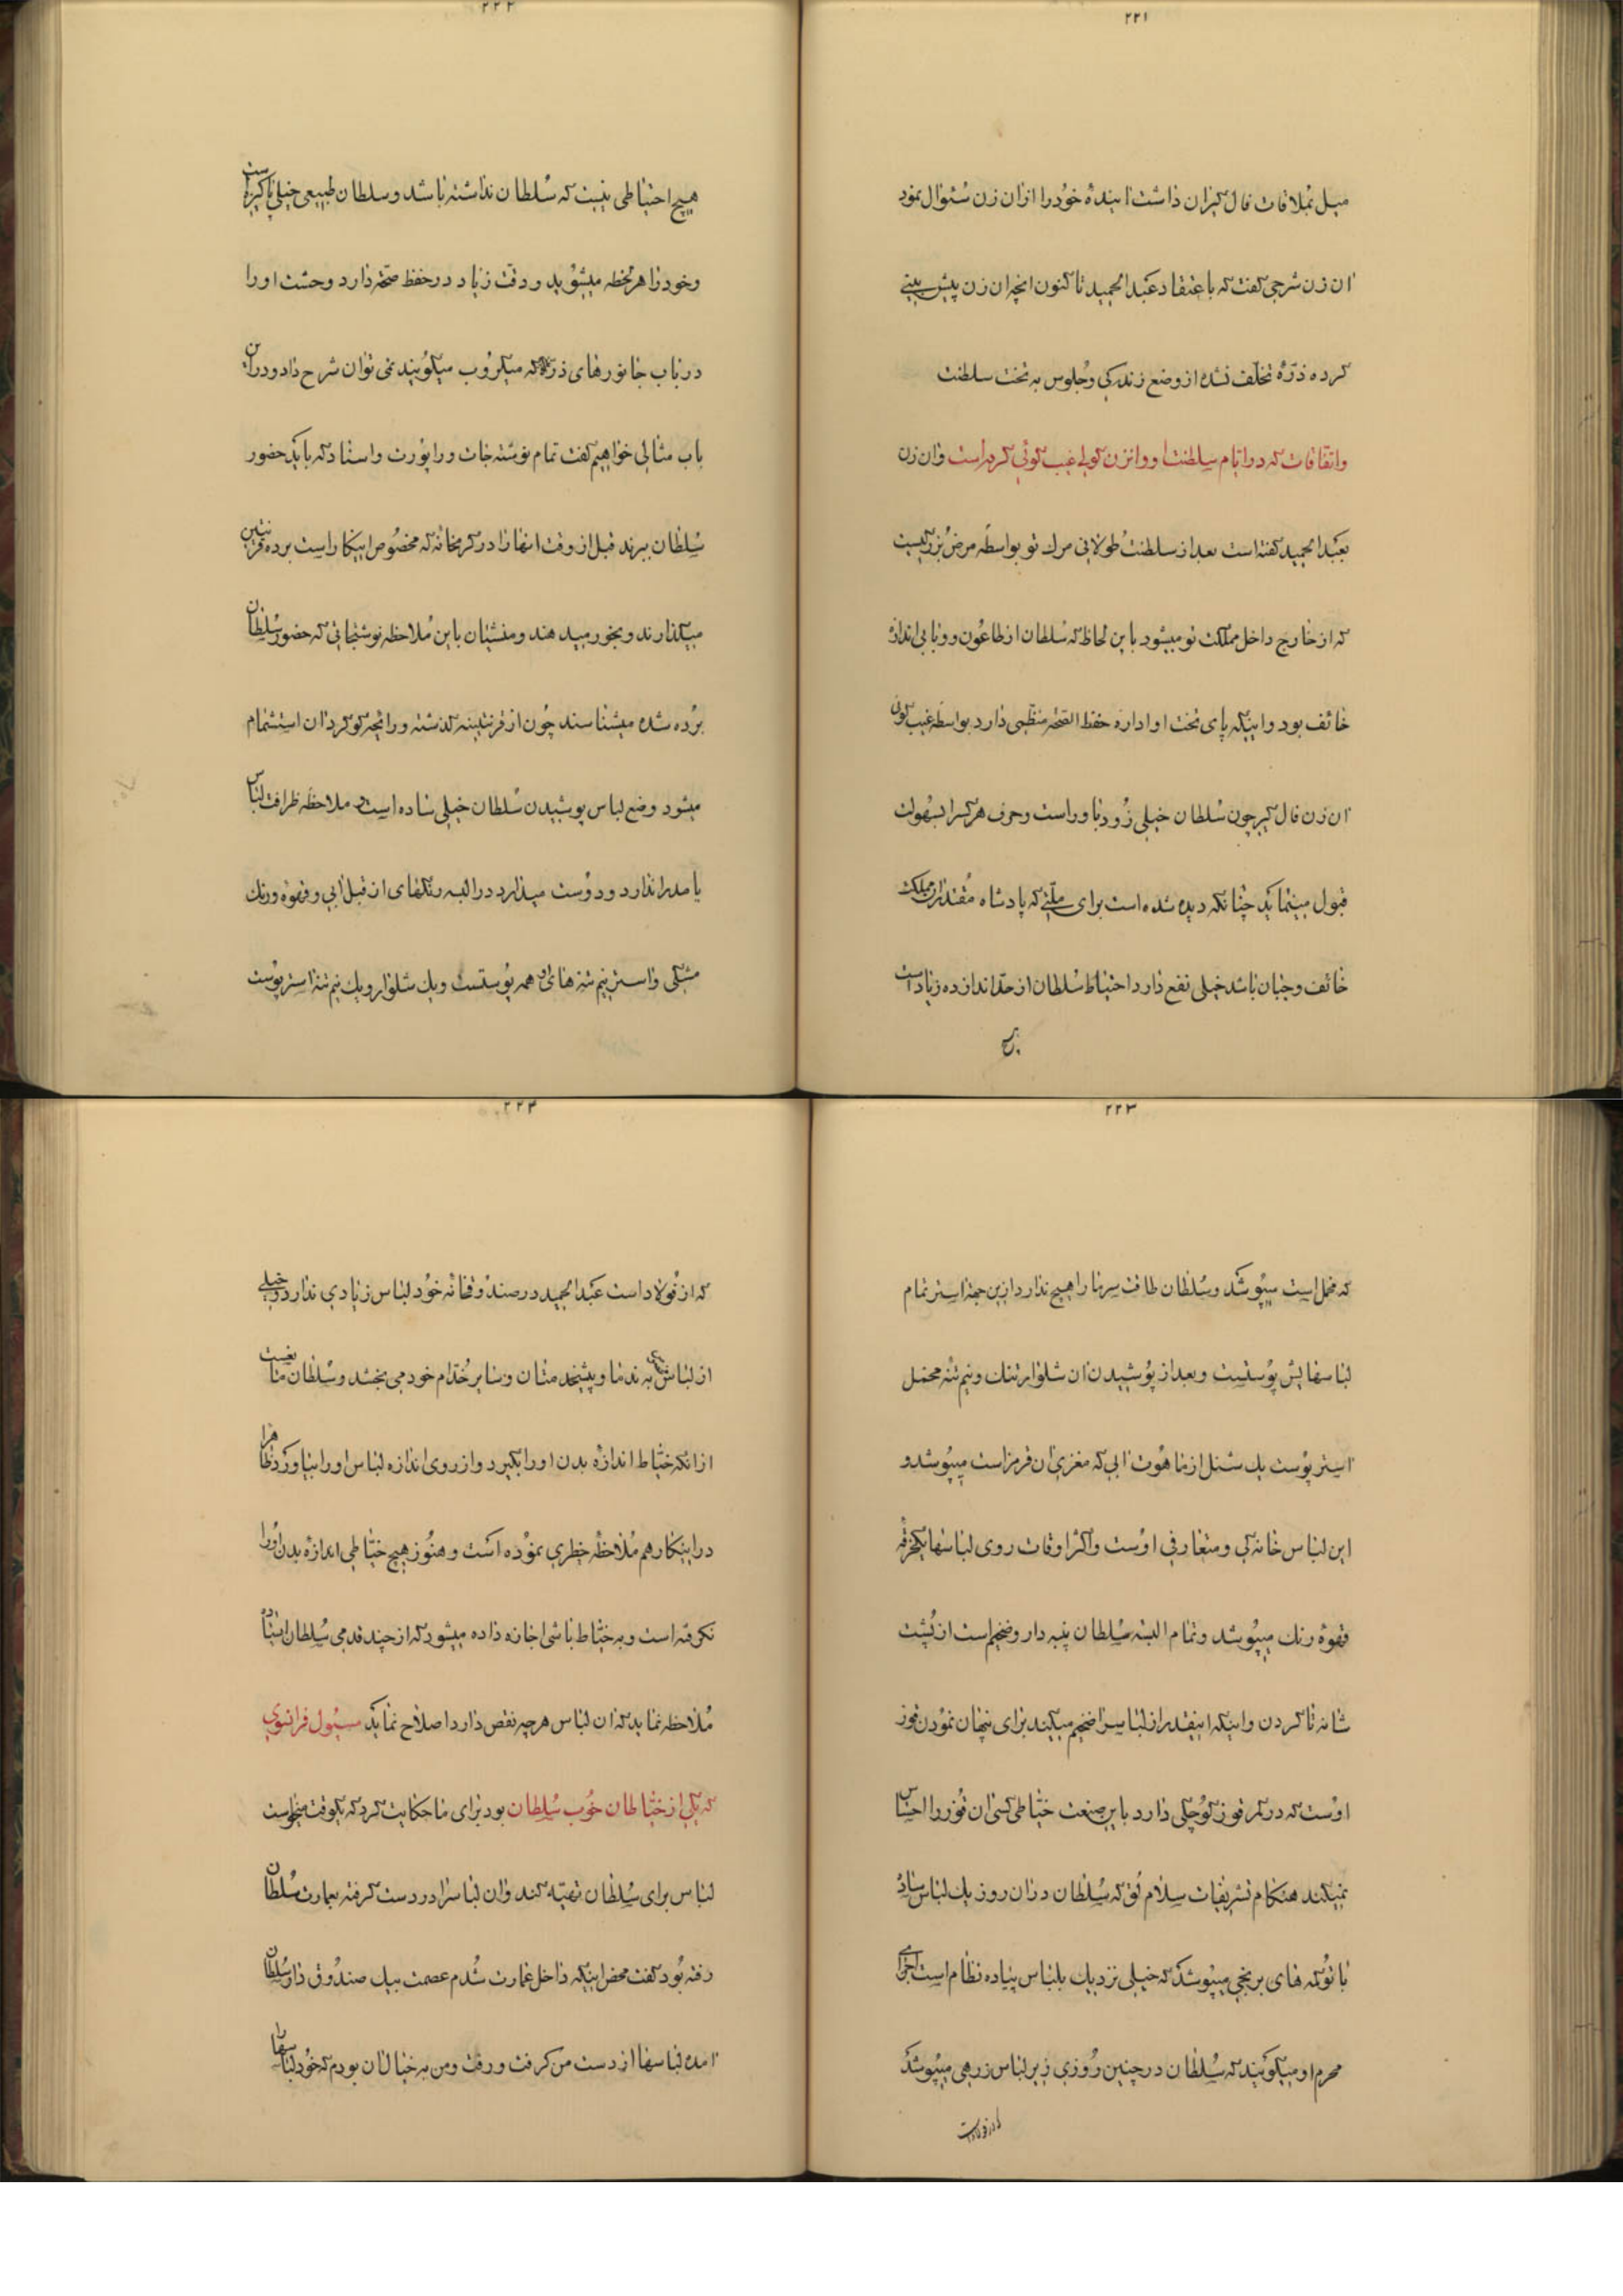 ۲۲۱
میل بملاقات فال کیران داشت اینده خود را ازان زن سئوال نمود
ان زن شرحی کفت که باعتقاد عبدالحمید تا کنون انچه ان زن پیش بینی
کرده ذرهٔ تخلف نشده از وضع زندکی و جلوس به تخت سلطنت
واتفاقات که در ایام سلطنت او وانزن کولی غیب کوئی کرده است وان زن
بعبدالحمید کفته است بعد از سلطنت طولانی مرك تو بواسطه مرض بزرکیست
که از خارج داخل مملکت تو میشود باین لحاظ که سلطان از طاعون و وبا بی اندازه
خائف بود و اینکه پای تخت او اداره حفظ الصحه منظمی دارد بواسطه غیب کوئی
ان زن فال کیر چون سلطان خیلی زود باور است وحرف هر کسرا بسهولت
قبول مینماید چنانکه دیده شده است برای ملتی که پادشاه مقتدران مملکت
خائف وجبان باشد خیلی نفع دارد احتیاط سلطان از حد اندازه زیاد است
هیچ
۲۲۲
هیچ احتیاطی نیست که سلطان نداشته باشد و سلطان طبیعی خیلی پاکیزه است
وخود را هر لحظه میشوید و دقت زیاد در حفظ صحه دارد وحشت او را
در باب جانورهای ذره که میکروب میکویند نمی توان شرح داد و دراین
باب مثالی خواهیم کفت تمام نوشته جات و راپورت و اسناد که باید حضور
سلطان ببرند قبل از وقت انها را در کرمخانه که مخصوص اینکار است برده قرنتین
میکذارند و بخور میدهند و منشیان باین ملاحظه نوشتجاتی که حضور سلطان
برده شده میشناسند چون از قرنتینه کذشته و رایحه کوکرد ان استشمام
میشود وضع لباس پوشیدن سلطان خیلی ساده است و ملاحظه ظرافت لباس
یا مد را ندارد و دوست میدارد در البسه رنکهای از قبیل ابی و قهوه و رنك
مشکی واستر نیم تنه های او همه پوستست ویك شلوار ویك نیم تنه استر پوست
۲۲۳
که مخمل است میپوشد و سلطان طاقت سرما را هیچ ندارد ازین جهة استر تمام
لباسهایش پوستست و بعد از پوشیدن ان شلوار تنك و نیم تنه مخمل
استر پوست یك شنل از ماهوت ابی که مغزی ان قرمز است میپوشد و
این لباس خانه کی ومتعارفی اوست واکثر اوقات روی لباسها یکخرقه
قهوهٔ رنك میپوشد وتمام البسه سلطان پنبه دار وضخیم است از پشت
شانه تا کردن و اینکه اینقدر از لباسرا ضخیم میکند برای پنهان نمودن قوز
اوست که در کمر قوز کوچکی دارد باین صنعت خیاطی کسی ان قوز را احساس
نمیکند هنکام تشریفات سلام نوق که سلطان دران روز یك لباس ساده
با توکمه های برنجی میپوشد که خیلی نزدیك بلباس پیاده نظام است اجزای
محرم او میکویند که سلطان در چنین روزی زیر لباس زرهی میپوشد
که از فولاد است
۲۲۴
که از فولاد است عبدالحمید در صندوقخانه خود لباس زیادی ندارد و خیلی
از لباسهای به ندما و پیشخدمتان وسایر خدام خود می بخشد وسلطان مانع است
از انکه خیاط اندازه بدن او را بکیرد و از روی اندازه لباس او را بیاورد ظاهرا
در اینکار هم ملاحظه خطری نموده است و هنوز هیچ خیاطی اندازه بدن او را
نکرفته است و به خیاط باشی اجازه داده میشود که از چند قدمی سلطان ایستاده
ملاحظه نماید که ان لباس هر چه نقص دارد اصلاح نماید مسیول فرانسوی
که یکی از خیاطان خوب سلطان بود برای ما حکایت کرد که یکوقت میخواست
لباس برای سلطان تهیه کند وان لباسرا در دست کرفته بعمارت سلطان
رفته بود کفت محض اینکه داخل عمارت شدم عصمت بیك صندوق دار سلطان
امده لباسها از دست من کرفت و رفت ومن به خیال ان بودم که خود لباسها را